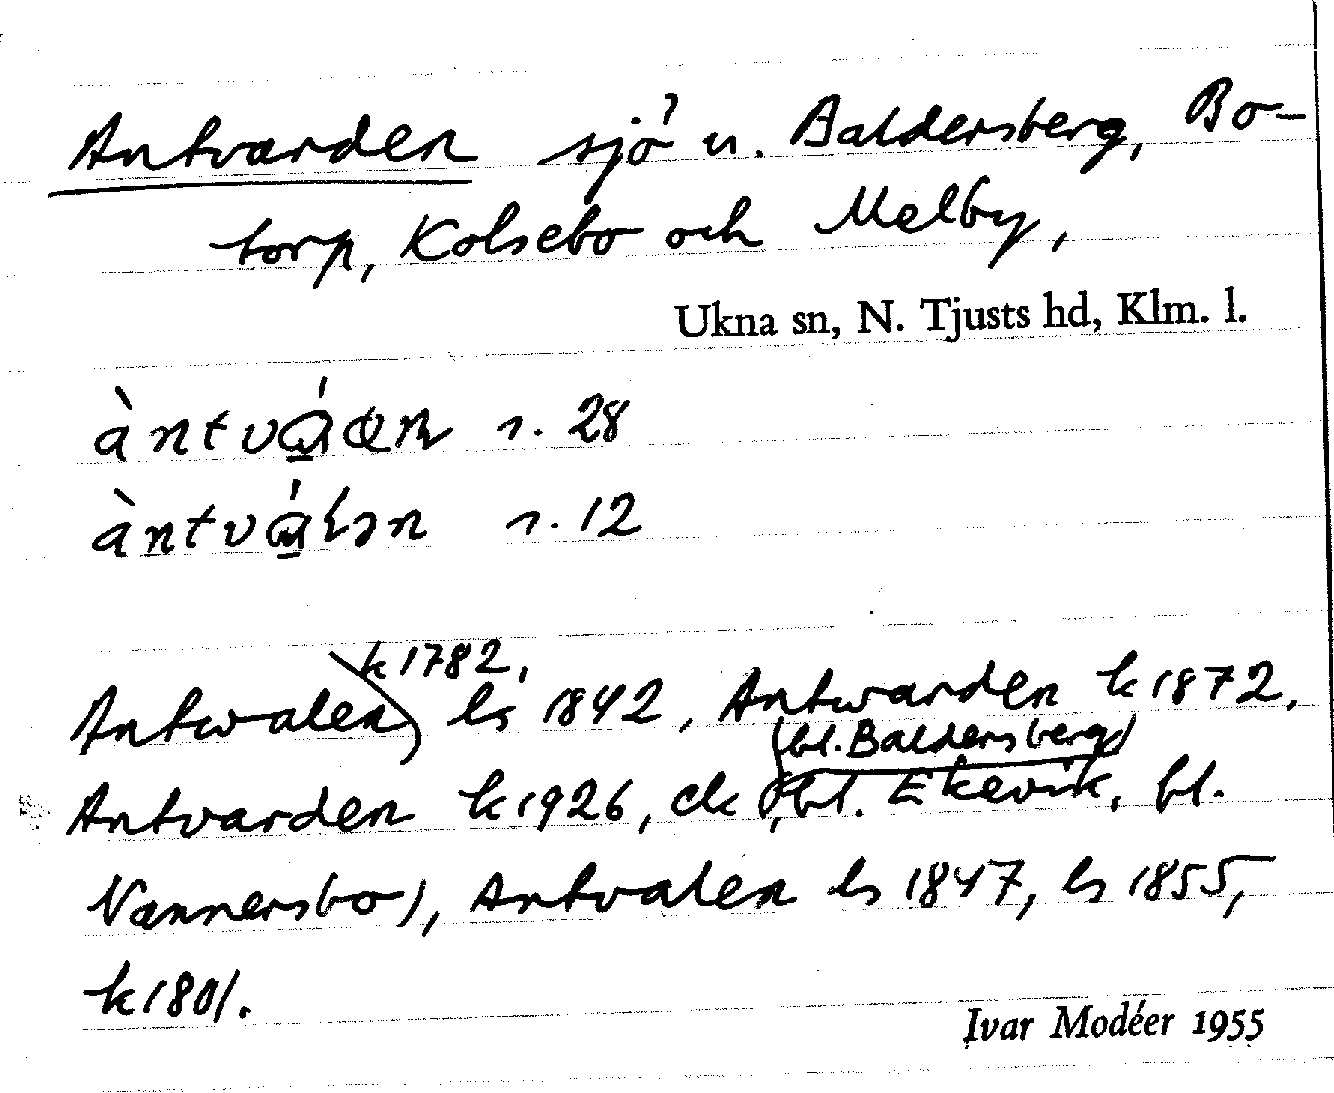 Antvarden sjö u. Baldersberg, Bo-
torp, Kolsebo och Melby,
Ukna sn, N. Tjusts hd, Klm. l.
s. 28
s. 12
Antwalen k 1782, ls 1842, Antwarden k 1872,
Antvarden k 1926, ek (bl. Baldersberg, bl. Ekevik, bl.
Vannersbo), Antvalen ls 1847, ls 1855,
k 1801.
Ivar Modéer 1955